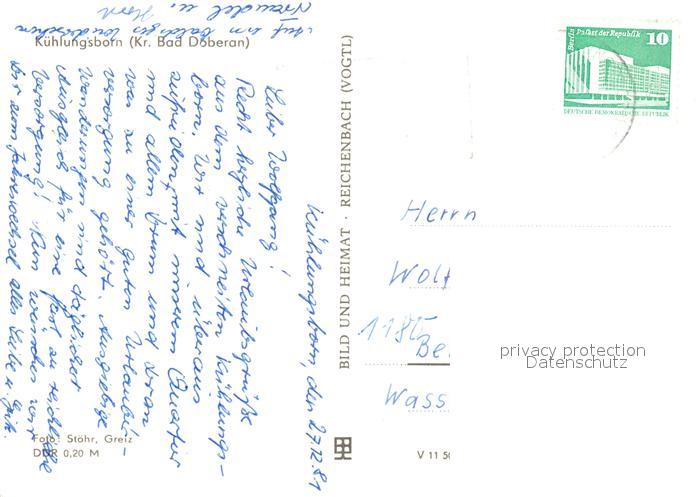 Kühlungsborn (Kr. Bad Doberan)
Kühlungsborn, den 27.12.81
Lieber Wolfgang!
Recht herzliche Urlaubsgrüße
aus dem verschneiten Kühlungs-
born. Wir sind überaus
zufrieden mit unserem Quartier
und allem Drum und Dran
was zu einer guten Urlauber-
versorgung gehört. Ausgiebige
Wanderungen sind täglicher
Ausgleich für eine fast zu reichliche
Versorgung! Nun wünschen wir
Dir zum Jahreswechsel alles Liebe u. Gute.
Auf ein baldiges Wiedersehen
Traudel u. Horst
Foto: Stöhr, Greiz
DDR 0,20 M
BILD UND HEIMAT · REICHENBACH (VOGTL)
V 11 50
Berlin Palast der Republik
10
DEUTSCHE DEMOKRATISCHE REPUBLIK
Herrn
Wolf
1185
Be
Wass
privacy protection
Datenschutz